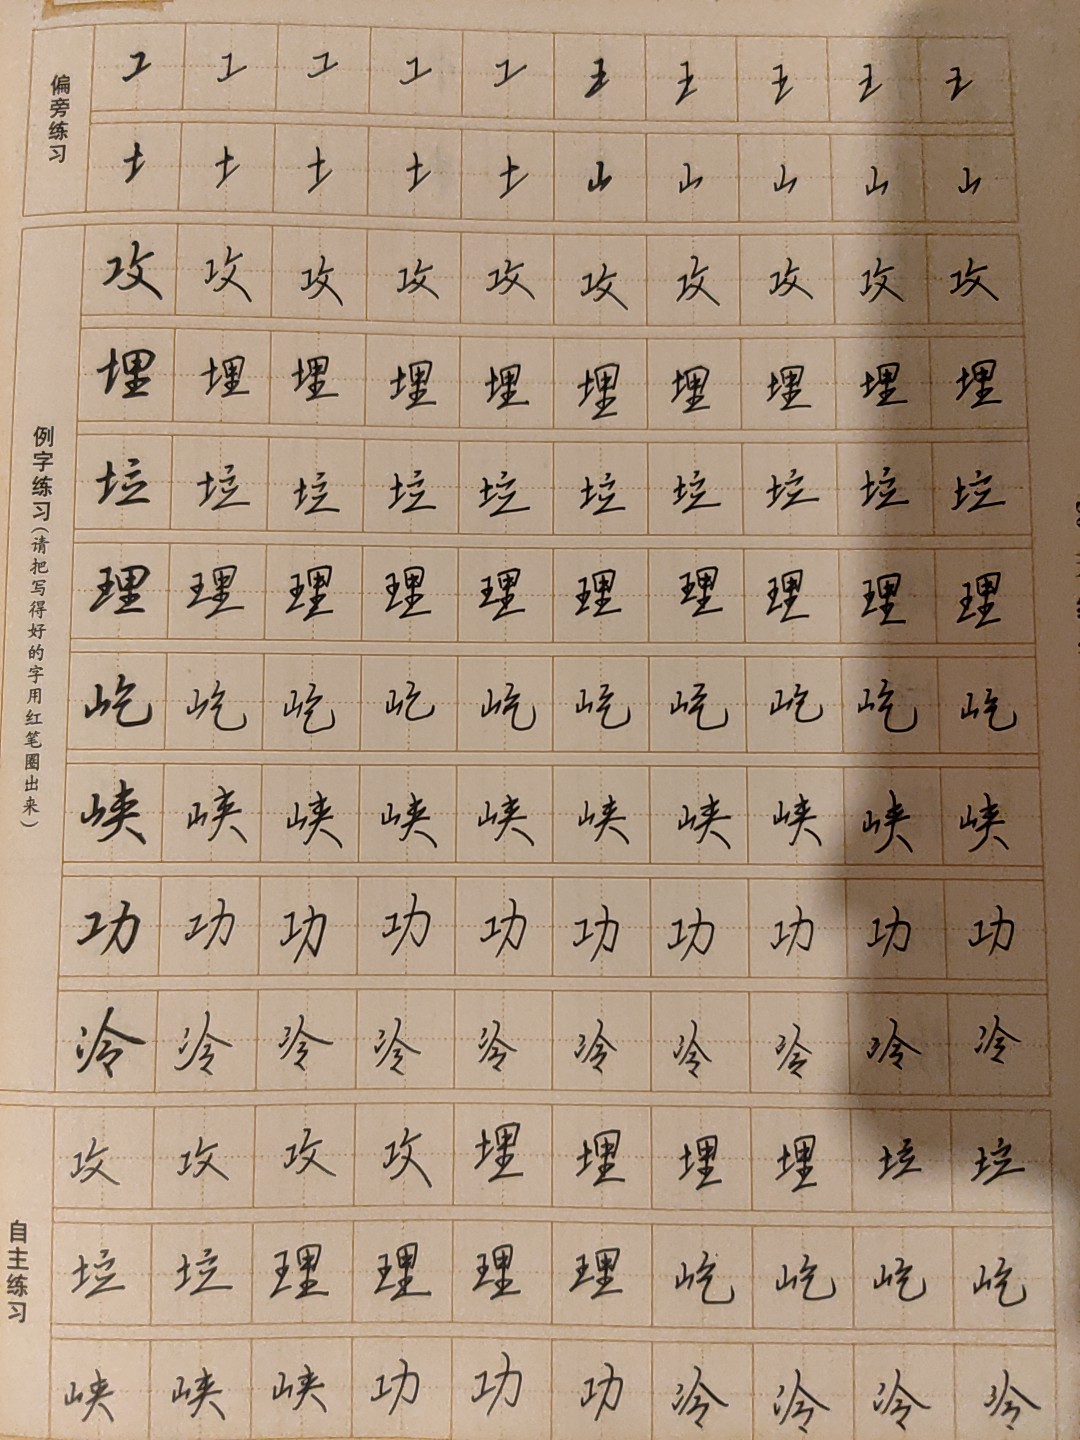 偏旁练习
工 工 工 工 工 王 王 王 王 王
土 土 土 土 土 山 山 山 山 山
例字练习(请把写得好的字用红笔圈出来)
攻 攻 攻 攻 攻 攻 攻 攻 攻 攻
埋 埋 埋 埋 埋 埋 埋 埋 埋 埋
垃 垃 垃 垃 垃 垃 垃 垃 垃 垃
理 理 理 理 理 理 理 理 理 理
屹 屹 屹 屹 屹 屹 屹 屹 屹 屹
峡 峡 峡 峡 峡 峡 峡 峡 峡 峡
功 功 功 功 功 功 功 功 功 功
冷 冷 冷 冷 冷 冷 冷 冷 冷 冷
自主练习
攻 攻 攻 攻 埋 埋 埋 埋 垃 垃
垃 垃 理 理 理 理 屹 屹 屹 屹
峡 峡 峡 功 功 功 冷 冷 冷 冷